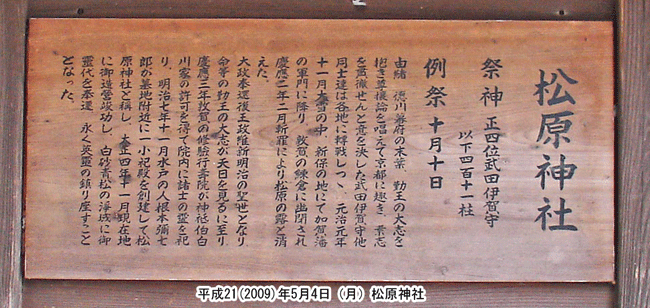 松原神社
祭神 正四位武田伊賀守
以下四百十一柱
例祭 十月十日
由緒 徳川幕府の末葉 勤王の大志を
抱き尊攘論を唱えて京都に趣き 素志
を貫徹せんと意を決した武田伊賀守他
同士達は各地に轉戦しつゝ 元治元年
十一月 の中、新保の地にて加賀藩
の軍門に降り 敦賀の鰊倉に幽閉され
慶應二年二月斬罪により松原の露と消
えた。
大政奉還後王政維新明治の聖世となり
命等の勤王の大志が天日を見るに至り
慶應三年敦賀の修験行壽院が神祇伯白
川家の許可を得て院内に諸士の霊を祀
り、明治七年十一月水戸の人根本彌七
郎が墓地附近に一小祀殿を創建して松
原神社と稱し、大正四年十一月現在地
に御造營竣功し、白砂青松の浄域に御
霊代を奉還、永く英霊の鎮り座すこと
となった。
平成21(2009)年5月4日 (月) 松原神社